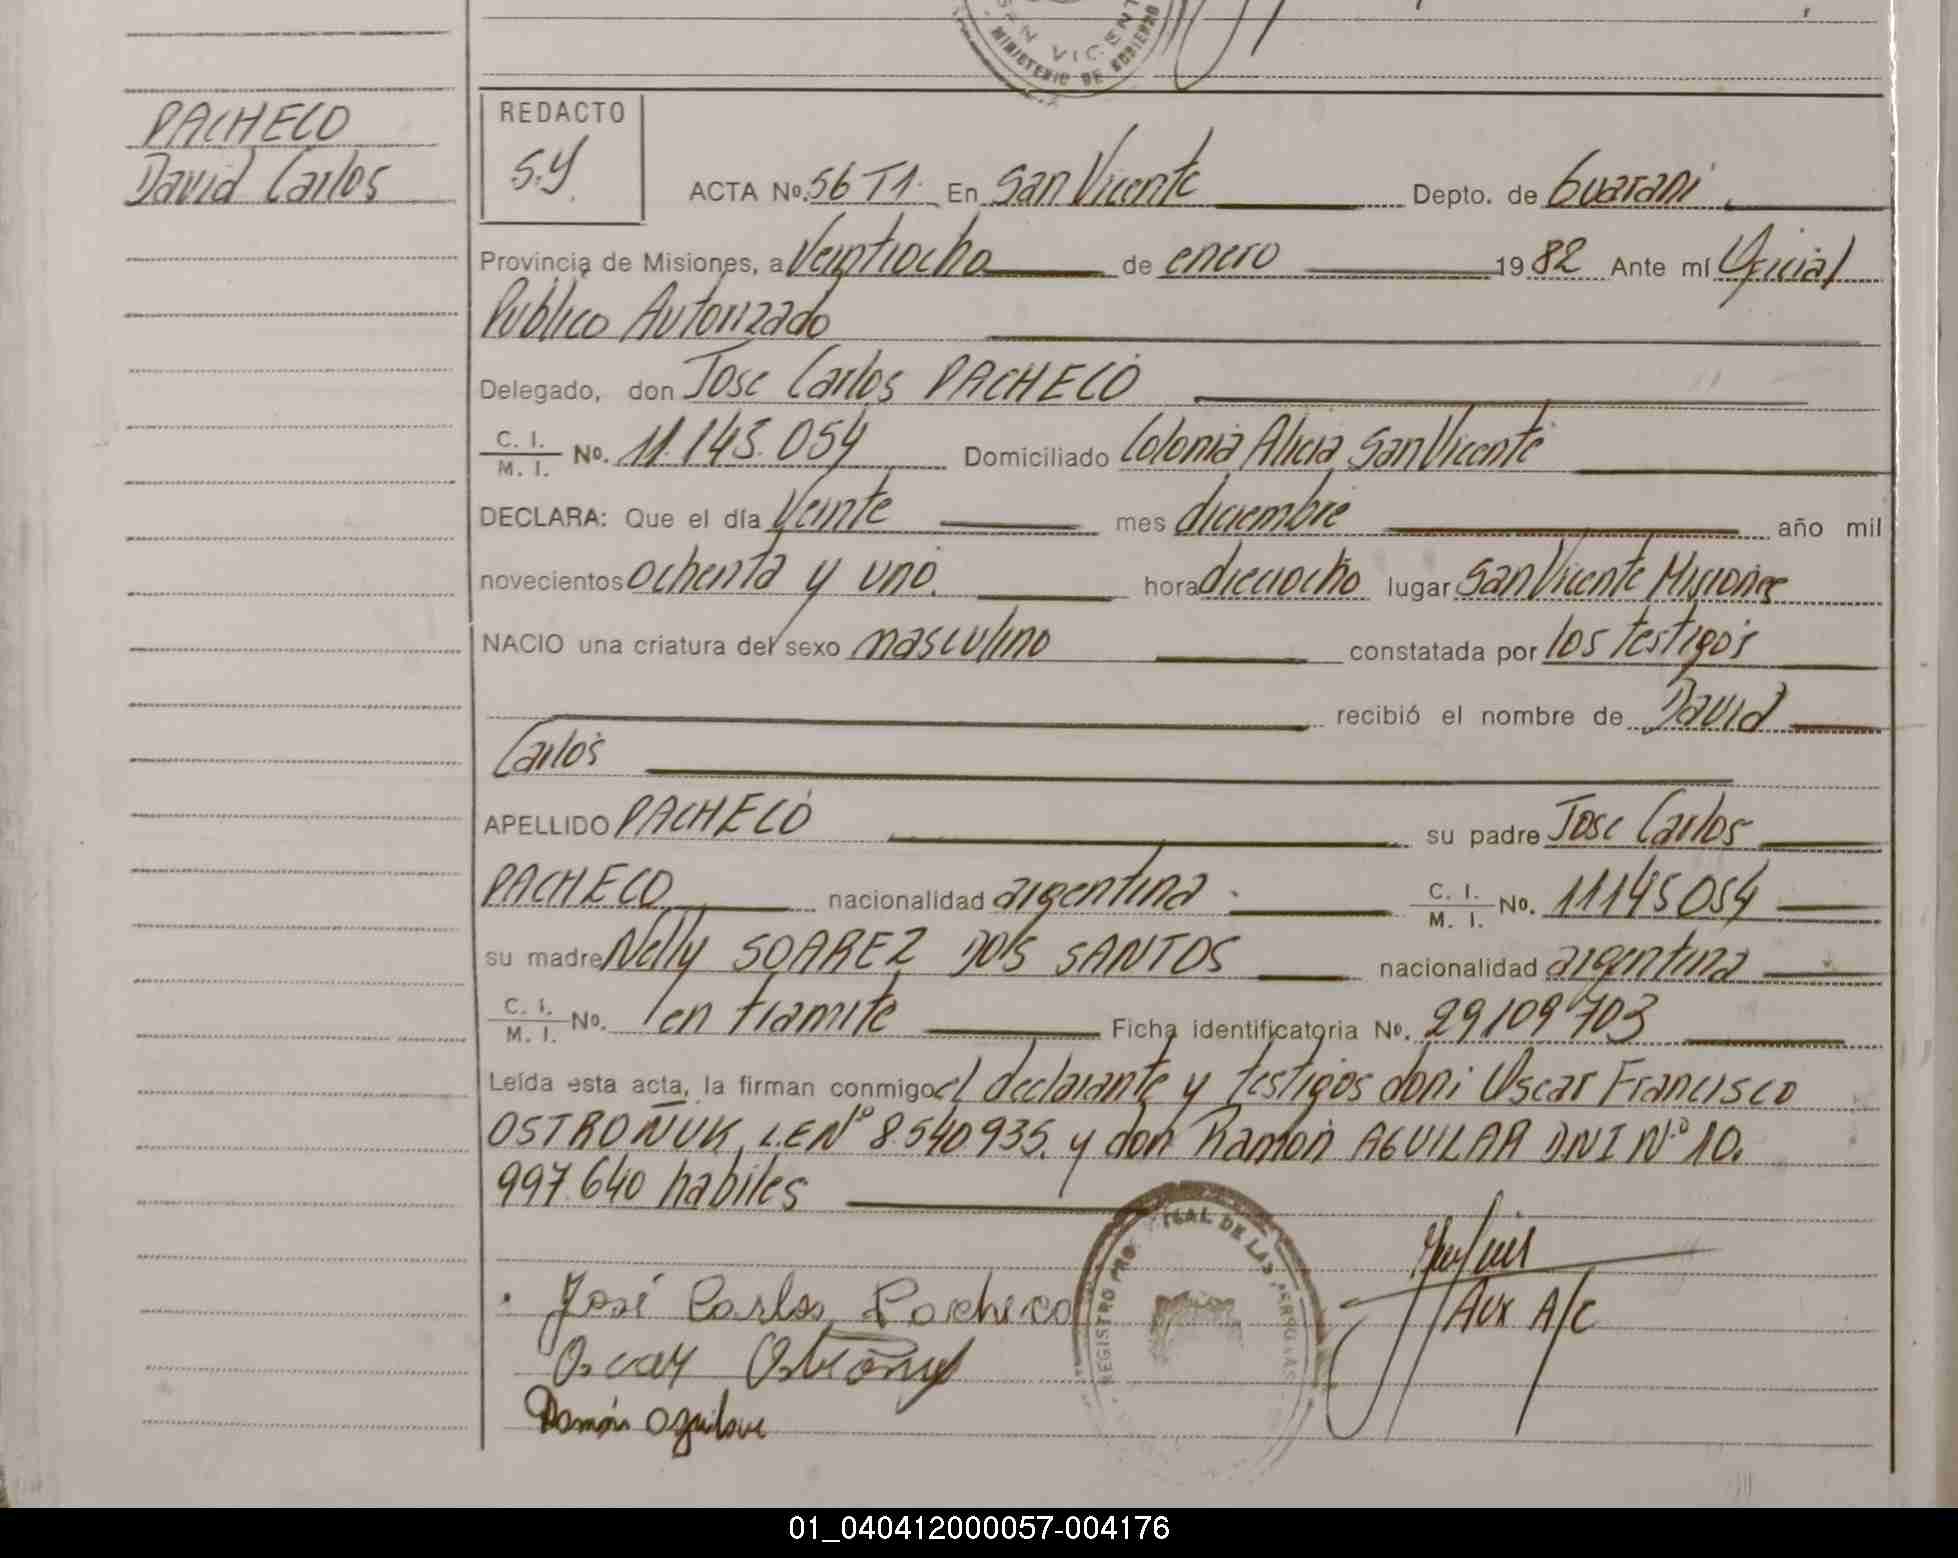 SAN VICENTE
MINISTERIO DE GOBIERNO
PACHECO
David Carlos
REDACTO
S.Y.
ACTA No. 56 T1. En San Vicente Depto. de Guarani.
Provincia de Misiones, a Veintiocho de enero 1982 Ante mí Oficial
Publico Autorizado
Delegado, don Jose Carlos PACHECO
C. I. / M. I. No. 11.145.054 Domiciliado Colonia Alicia San Vicente
DECLARA: Que el día Veinte mes diciembre año mil
novecientos ochenta y uno. hora dieciocho lugar San Vicente Misiones
NACIO una criatura del sexo masculino constatada por los testigos
recibió el nombre de David
Carlos
APELLIDO PACHECO su padre Jose Carlos
PACHECO nacionalidad argentina C. I. / M. I. No. 11145054
su madre Nelly SOAREZ DOS SANTOS nacionalidad argentina
C. I. / M. I. No. en tramite Ficha identificatoria No. 29109703
Leída esta acta, la firman conmigo el declarante y testigos don: Oscar Francisco
OSTROÑUK, L.E Nº 8.540935. y don Ramon AGUILAR DNI Nº 10.
997.640 habiles
REGISTRO DE LAS PERSONAS
José Carlos Pacheco
Aux A/C
Oscar
Ramón Aguilar
01_040412000057-004176